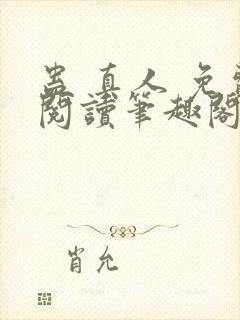 蛊真人免費
閱讀筆趣閣
肖允